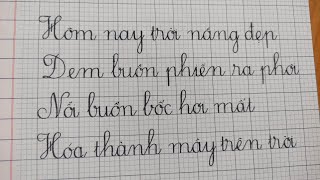 Hôm nay trời nắng đẹp
Đem buồn phiền ra phơi
Nỗi buồn bốc hơi mất
Hóa thành mây trên trời